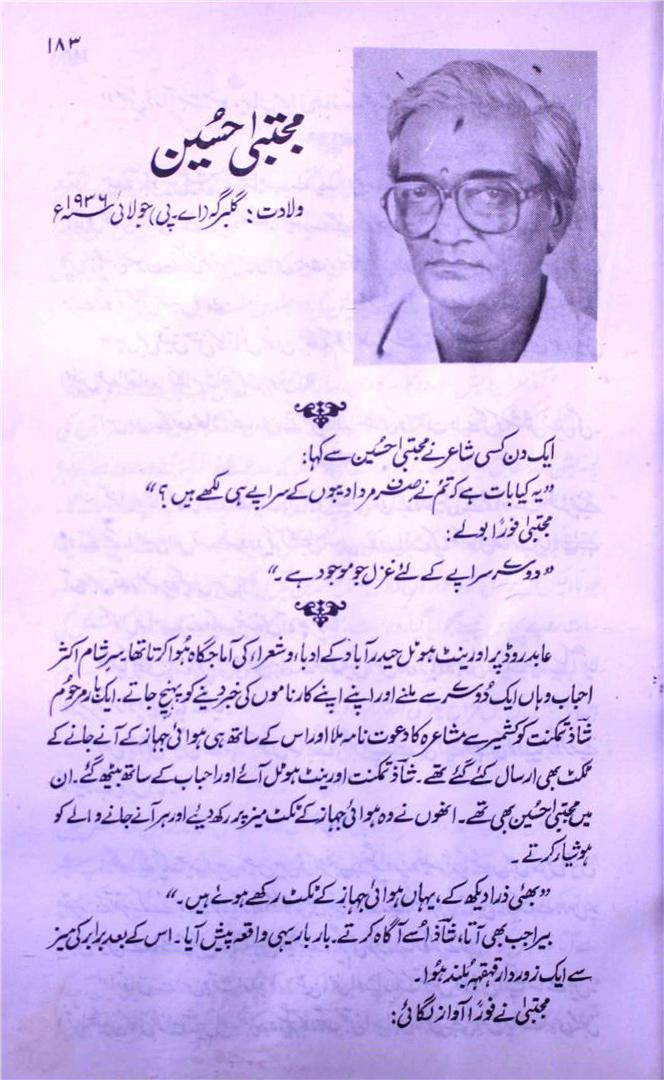 ۱۸۳
مجتبیٰ حُسین
ولادت: گلبرگہ (اے۔پی) جولائی ۱۹۳۶ء
ایک دن کسی شاعر نے مجتبیٰ حُسین سے کہا:
”یہ کیا بات ہے کہ تم نے صرف مرد ادیبوں کے سراپے ہی لکھے ہیں؟“
مجتبیٰ فوراً بولے:
”دوسرے سراپے کے لئے غزل جو موجود ہے۔“
عابد روڈ پر اورینٹ ہوٹل حیدرآباد کے ادباء و شعراء کی آماجگاہ ہُوا کرتا تھا۔ سرِشام اکثر
احباب وہاں ایک دُوسرے سے ملنے اور اپنے اپنے کارناموں کی خبر دینے کو پہنچ جاتے۔ ایک بار مرحُوم
شاذ تمکنت کو کشمیر سے مشاعرہ کا دعوت نامہ ملا اور اس کے ساتھ ہی ہوائی جہاز کے آنے جانے کے
ٹکٹ بھی ارسال کئے گئے تھے۔ شاذ تمکنت اورینٹ ہوٹل آئے اور احباب کے ساتھ بیٹھ گئے۔ ان
میں مجتبیٰ حُسین بھی تھے۔ انھوں نے وہ ہوائی جہاز کے ٹکٹ میز پر رکھ دیئے اور ہر آنے جانے والے کو
ہوشیار کرتے۔
”بھئی ذرا دیکھ کے، یہاں ہوائی جہاز کے ٹکٹ رکھے ہوئے ہیں۔“
بیرا جب بھی آتا، شاذ اُسے آگاہ کرتے۔ بار بار یہی واقعہ پیش آیا۔ اس کے بعد برابر کی میز
سے ایک زوردار قہقہہ بُلند ہُوا۔
مجتبیٰ نے فوراً آواز لگائی: